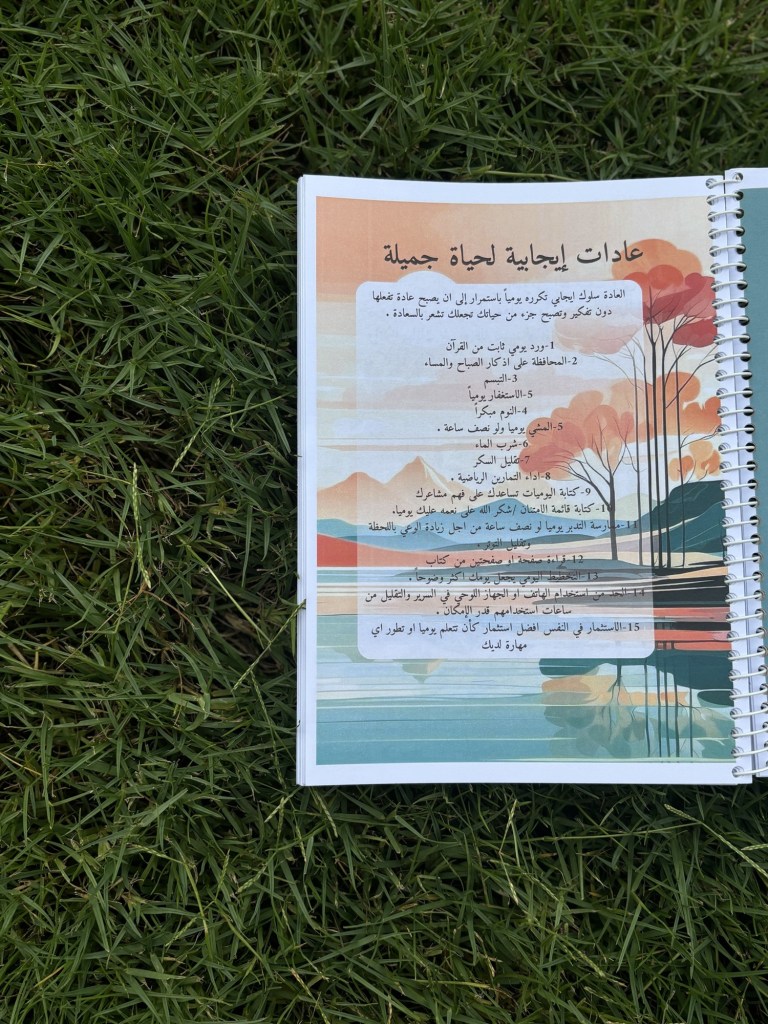 عادات إيجابية لحياة جميلة
العادة سلوك ايجابي تكرره يومياً باستمرار إلى ان يصبح عادة تفعلها
دون تفكير وتصبح جزء من حياتك تجعلك تشعر بالسعادة .
1-ورد يومي ثابت من القرآن
2-المحافظة على اذكار الصباح والمساء
3-التبسم
5-الاستغفار يومياً
4-النوم مبكراً
5-المشي يوميا ولو نصف ساعة .
6-شرب الماء
7-تقليل السكر
8-اداء التمارين الرياضية .
9-كتابة اليوميات تساعدك على فهم مشاعرك
10-كتابة قائمة الامتنان /شكر الله على نعمه عليك يوميا.
11-ممارسة التدبر يوميا لو نصف ساعة من اجل زيادة الوعي باللحظة
وتقليل التوتر .
12-قراءة صفحة او صفحتين من كتاب
13-التخطيط اليومي يجعل يومك اكثر وضوحاً .
14-الحد من استخدام الهاتف او الجهاز اللوحي في السرير والتقليل من
ساعات استخدامهم قدر الإمكان .
15-الاستثمار في النفس افضل استثمار كأن تتعلم يوميا او تطور اي
مهارة لديك